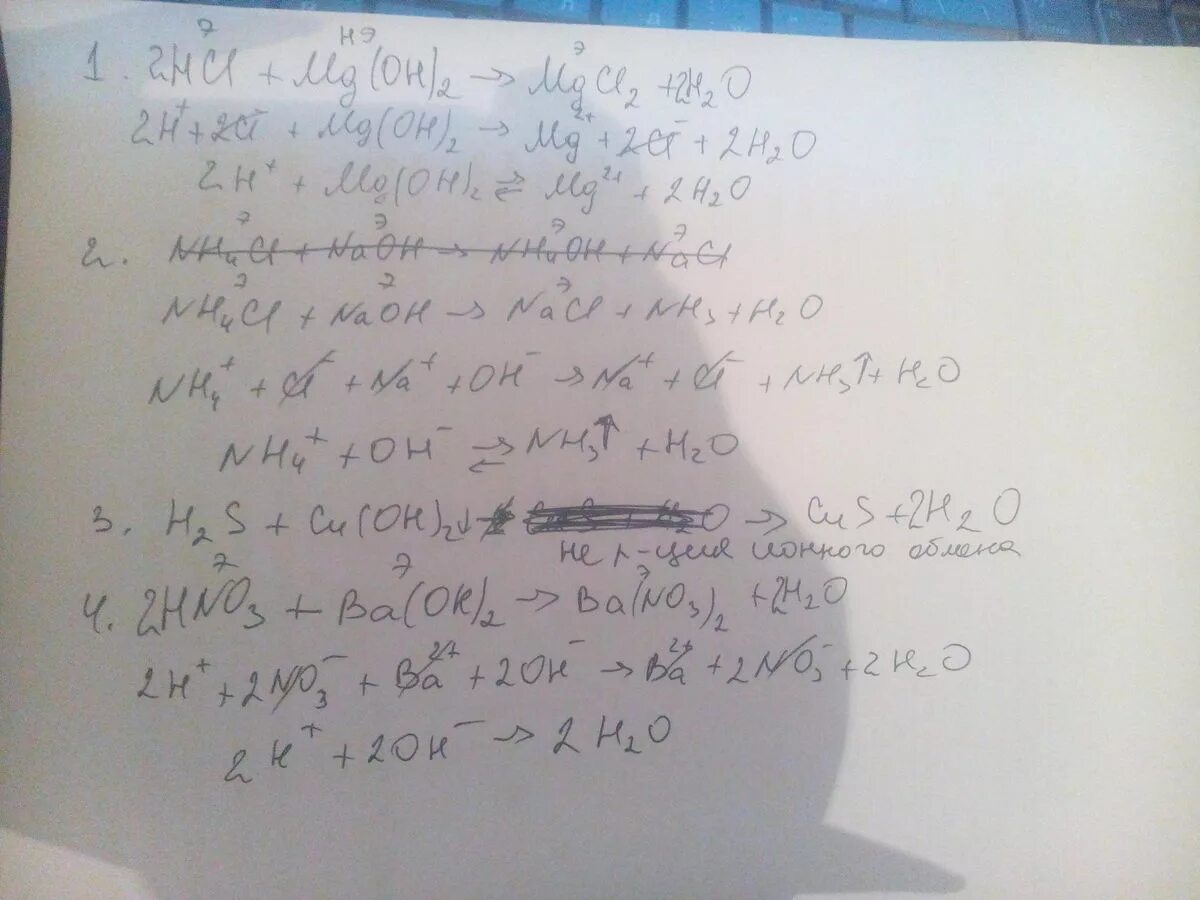 1. 2HCl + Mg(OH)₂ → MgCl₂ + 2H₂O
2H⁺ + 2Cl⁻ + Mg(OH)₂ → Mg²⁺ + 2Cl⁻ + 2H₂O
2H⁺ + Mg(OH)₂ ⇌ Mg²⁺ + 2H₂O
2. NH₄Cl + NaOH → NH₄OH + NaCl
NH₄Cl + NaOH → NaCl + NH₃ + H₂O
NH₄⁺ + Cl⁻ + Na⁺ + OH⁻ → Na⁺ + Cl⁻ + NH₃↑ + H₂O
NH₄⁺ + OH⁻ ⇌ NH₃↑ + H₂O
3. H₂S + Cu(OH)₂↓ → CuS + 2H₂O
не р-ция ионного обмена
4. 2HNO₃ + Ba(OH)₂ → Ba(NO₃)₂ + 2H₂O
2H⁺ + 2NO₃⁻ + Ba²⁺ + 2OH⁻ → Ba²⁺ + 2NO₃⁻ + 2H₂O
2H⁺ + 2OH⁻ → 2H₂O